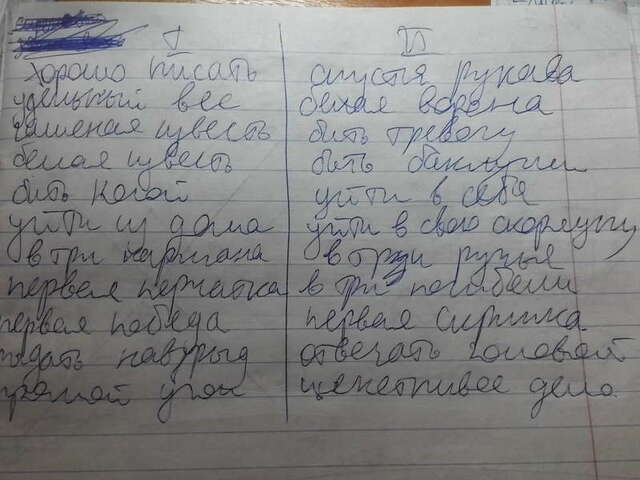 I
хорошо писать
удельный вес
гашеная известь
белая известь
бить ногой
уйти из дома
в три кармана
первая перчатка
первая победа
рыдать навзрыд
прямой угол
II
спустя рукава
белая ворона
бить тревогу
бить баклуши
уйти в себя
уйти в свою скорлупу
в три ручья
в три погибели
первая скрипка
отвечать головой
щекотливое дело